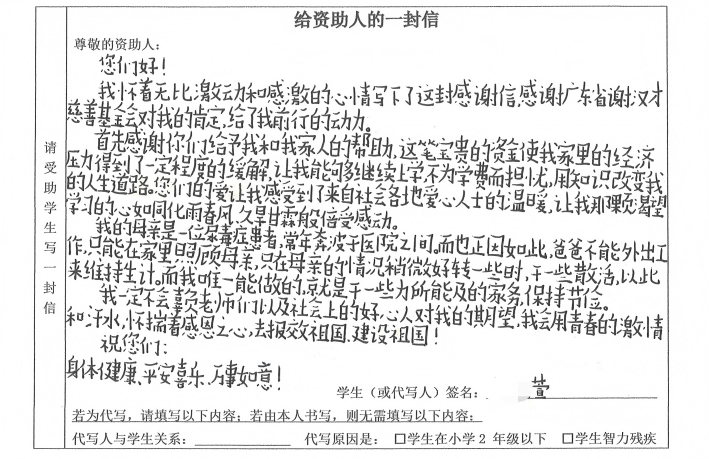 给资助人的一封信
请受助学生写一封信
尊敬的资助人：
您们好！
我怀着无比激动和感激的心情写下了这封感谢信，感谢广东省谢汉才
慈善基金会对我的肯定，给了我前行的动力。
首先感谢你们给予我和我家人的帮助，这笔宝贵的资金使我家里的经济
压力得到了一定程度的缓解，让我能够继续上学不为学费而担忧，用知识改变我
的人生道路。您们的爱让我感受到了来自社会各地爱心人士的温暖，让我那颗渴望
学习的心如同化雨春风，久旱甘霖般倍受感动。
我的母亲是一位尿毒症患者，常年奔波于医院之间，而也正因如此，爸爸不能外出工
作，只能在家里照顾母亲，只在母亲的情况稍微好转一些时，干一些散活，以此
来维持生计，而我唯一能做的，就是干一些力所能及的家务，保持节俭。
我一定不会辜负老师们以及社会上的好心人对我的期望，我会用青春的激情
和汗水，怀揣着感恩之心，去报效祖国、建设祖国！
祝您们：
身体健康、平安喜乐、万事如意！
学生（或代写人）签名： 萱
若为代写，请填写以下内容；若由本人书写，则无需填写以下内容：
代写人与学生关系： 代写原因是： □学生在小学 2 年级以下 □学生智力残疾